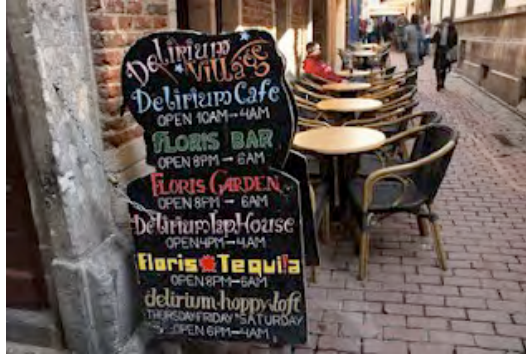 Delirium
Village
Delirium Cafe
OPEN 10AM - 4AM
FLORIS BAR
OPEN 8PM - 6AM
FLORIS GARDEN
OPEN 8PM - 6AM
Delirium Tap House
OPEN 4PM - 4AM
Floris Tequila
OPEN 8PM - 6AM
delirium hoppy loft
THURSDAY FRIDAY SATURDAY
OPEN 6PM - 4AM